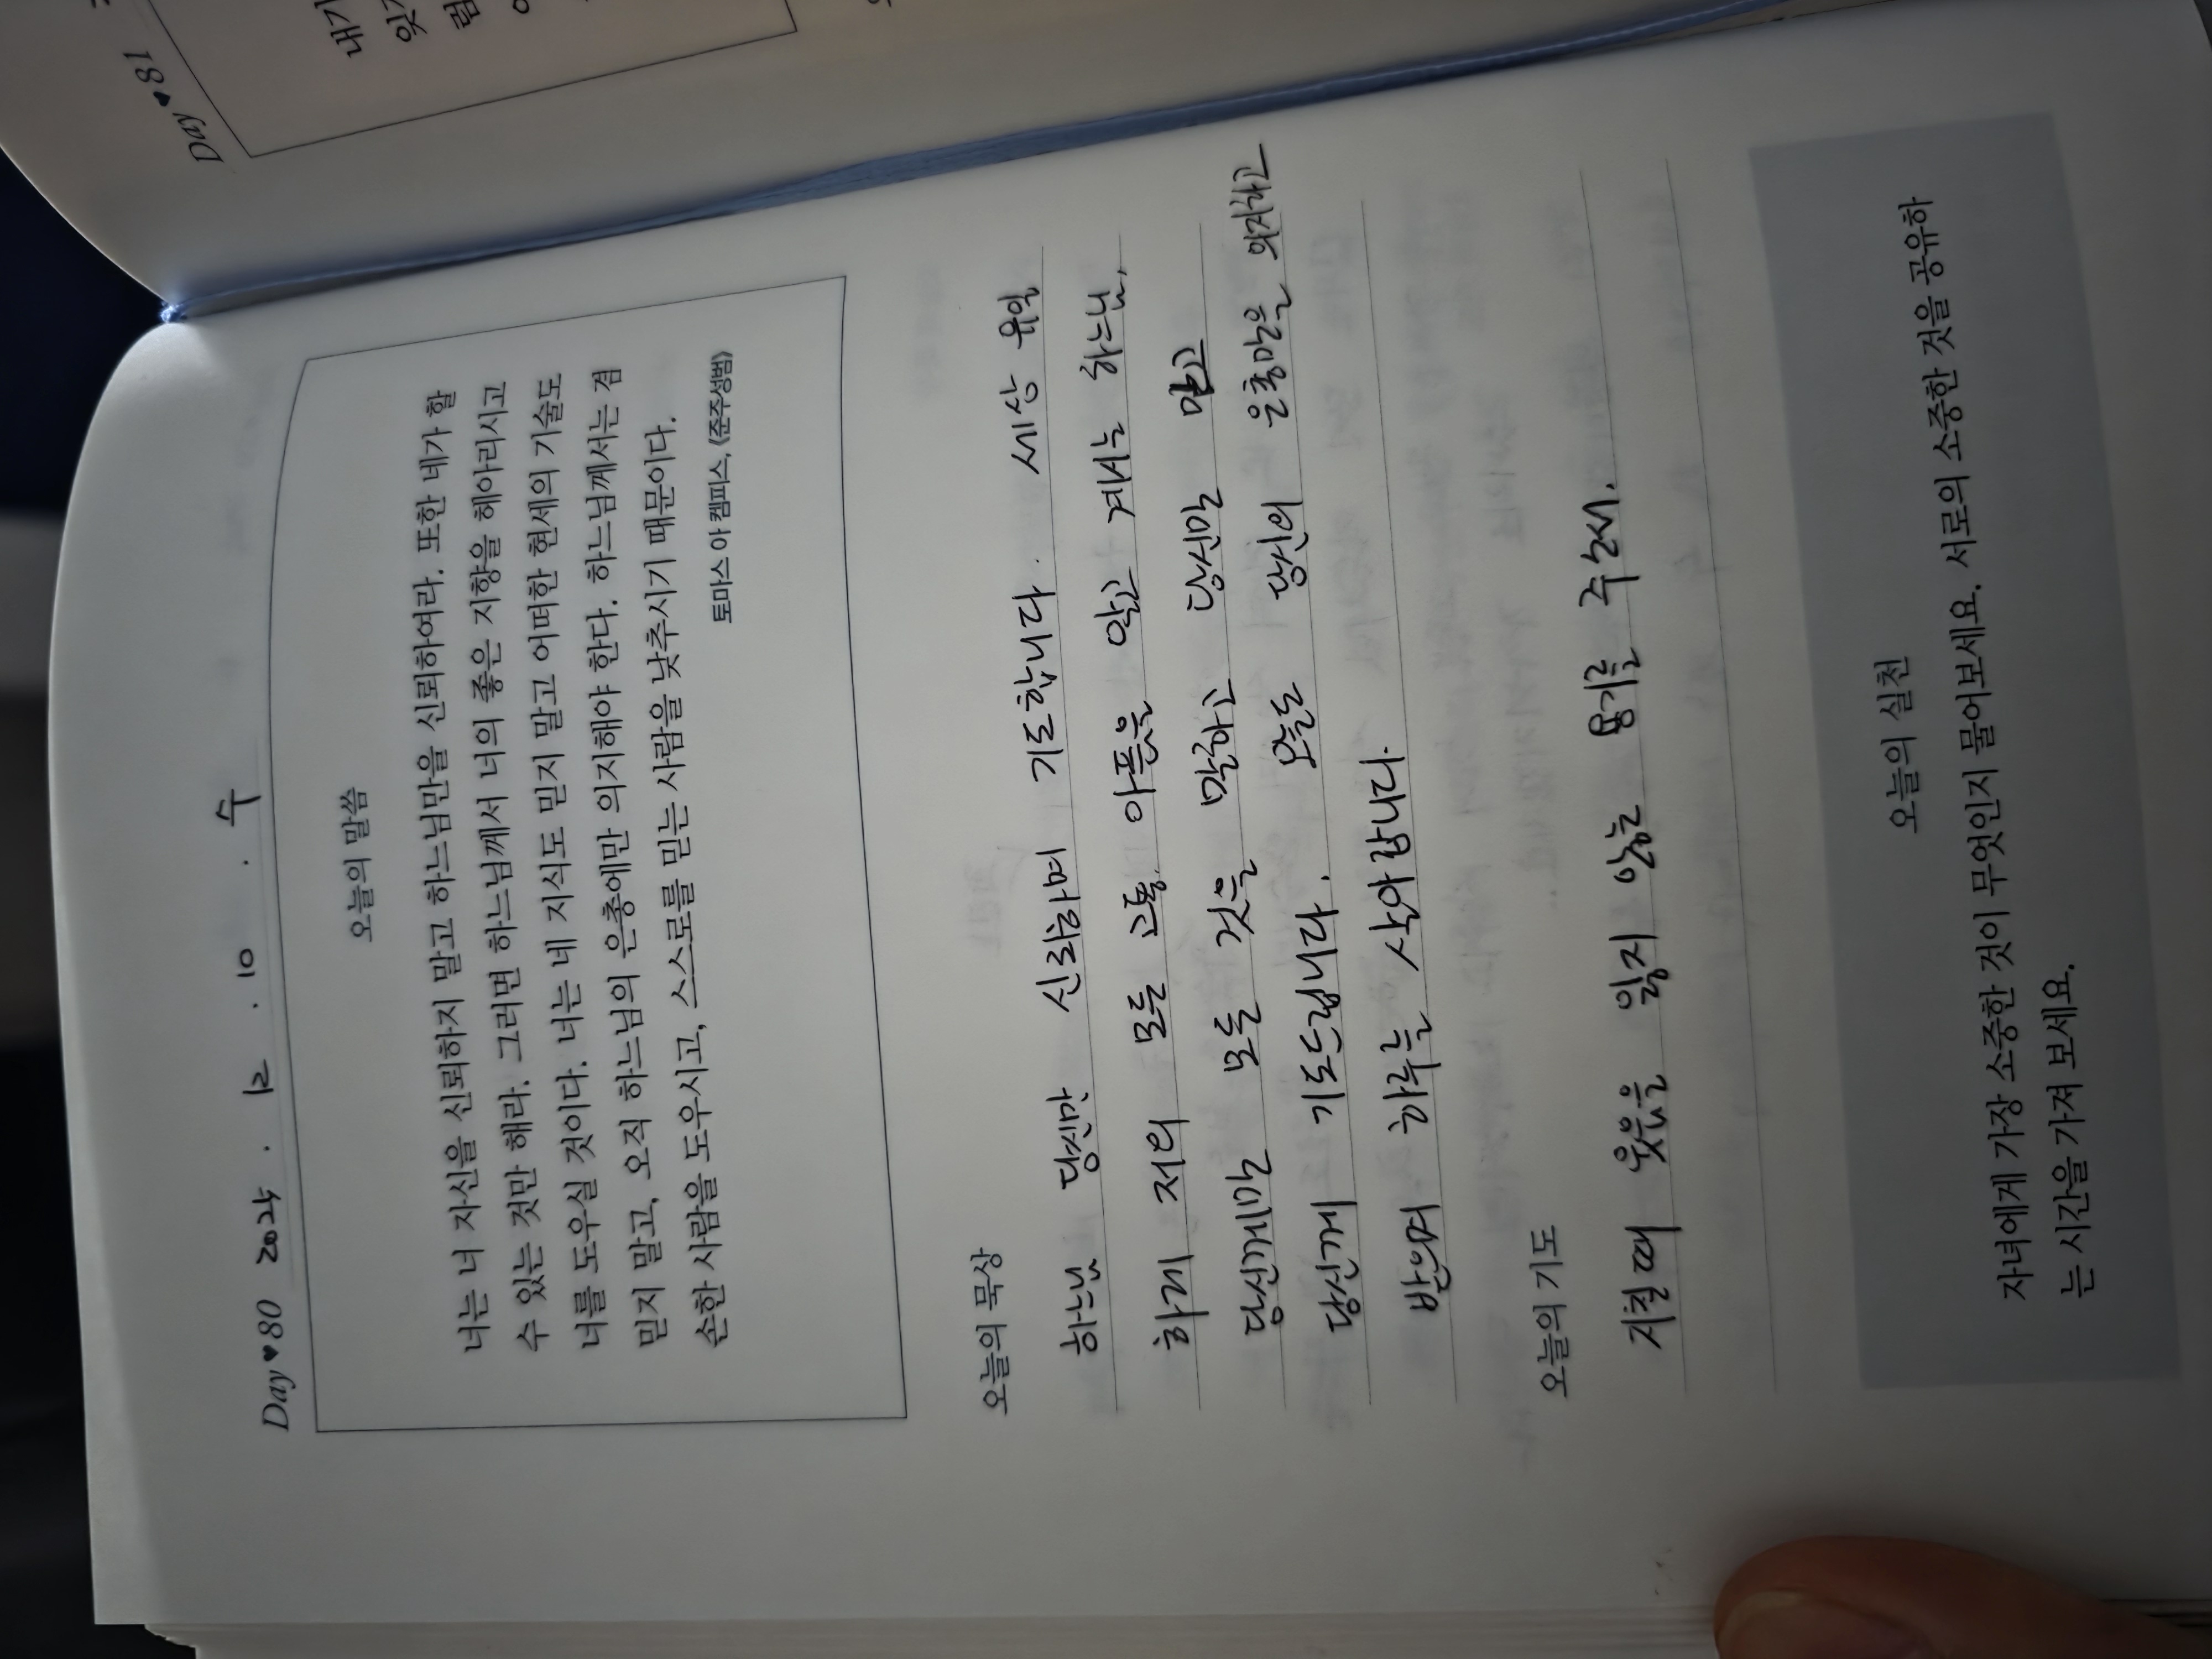 Day♥80 2025 . 12 . 10 . 수
오늘의 말씀
너는 너 자신을 신뢰하지 말고 하느님만을 신뢰하여라. 또한 네가 할
수 있는 것만 해라. 그러면 하느님께서 너의 좋은 지향을 헤아리시고
너를 도우실 것이다. 너는 네 지식도 믿지 말고 어떠한 현세의 기술도
믿지 말고, 오직 하느님의 은총에만 의지해야 한다. 하느님께서는 겸
손한 사람을 도우시고, 스스로를 믿는 사람을 낮추시기 때문이다.
토마스 아 켐피스, 《준주성범》
오늘의 묵상
하느님 당신만 신뢰하며 기도합니다. 세상 유일
하게 저의 모든 고통, 아픔을 알고 계시는 하느님,
당신께만 모든 것을 말하고 당신만 믿고
당신께 기도드립니다. 오늘도 당신의 은총만을 의지하고
받으며 하루를 살아갑니다.
오늘의 기도
지칠때 웃음을 잃지 않는 용기를 주소서.
오늘의 실천
자녀에게 가장 소중한 것이 무엇인지 물어보세요. 서로의 소중한 것을 공유하
는 시간을 가져 보세요.
Day♥81
내가